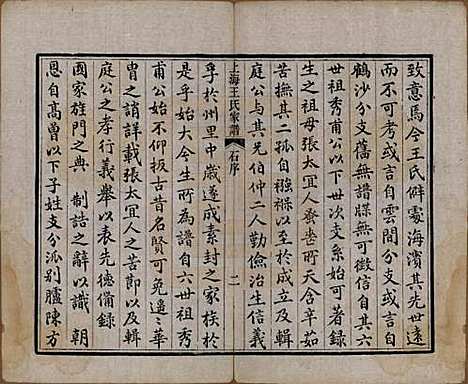 致意焉今王氏僻處海濱其先世遠
而不可考或言自雲間分支或言自
鶴沙分支舊無譜牒無可徵信自其六
世祖秀甫公以下世次支系始可著錄
生之祖母張太宜人齋喪所天含辛茹
苦撫其二孤自襁褓以至於成立及輯
庭公與其兄伯仲二人勤儉治生信義
孚於州里中歲遂成素封之家族於
上海王氏家譜 右序 二
是乎始大今生所為譜自六世祖秀
甫公始不仰扳古昔名賢可免遙遙華
胄之誚詳載張太宜人之苦節以及輯
庭公之孝行義舉以表先德備錄
國家雄門之典 制誥之辭以識 朝
恩自高曾以下子姓支分派別臚陳方